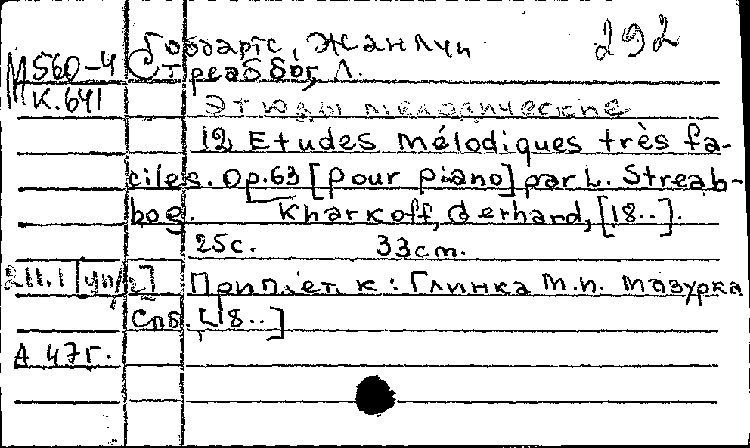 292
Гоббартс, Жан Луи
М 560-4 Стреаббог, Л.
К.641
Этюды мелодические
12 Etudes mélodiques très fa-
ciles. Op.63 [pour piano] par L. Streab-
bog. Kharkoff, Gerhard, [18..].
25c. 33cm.
Приплет к: Глинка М.И. Мазурка
Спб. [18..]
А 47г.